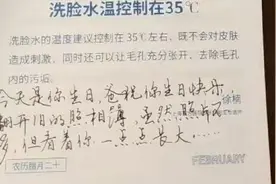 洗脸水温控制在35℃
洗脸水的温度建议控制在35℃左右，既不会对皮肤
造成刺激，同时还可以让毛孔充分张开、去除毛孔
内的污垢。
今天是你生日，爸祝你生日快乐，
徐楠
翻开旧的照相薄，虽然照片不
多，但看着你一点点长大……
农历腊月二十
FEBRUARY